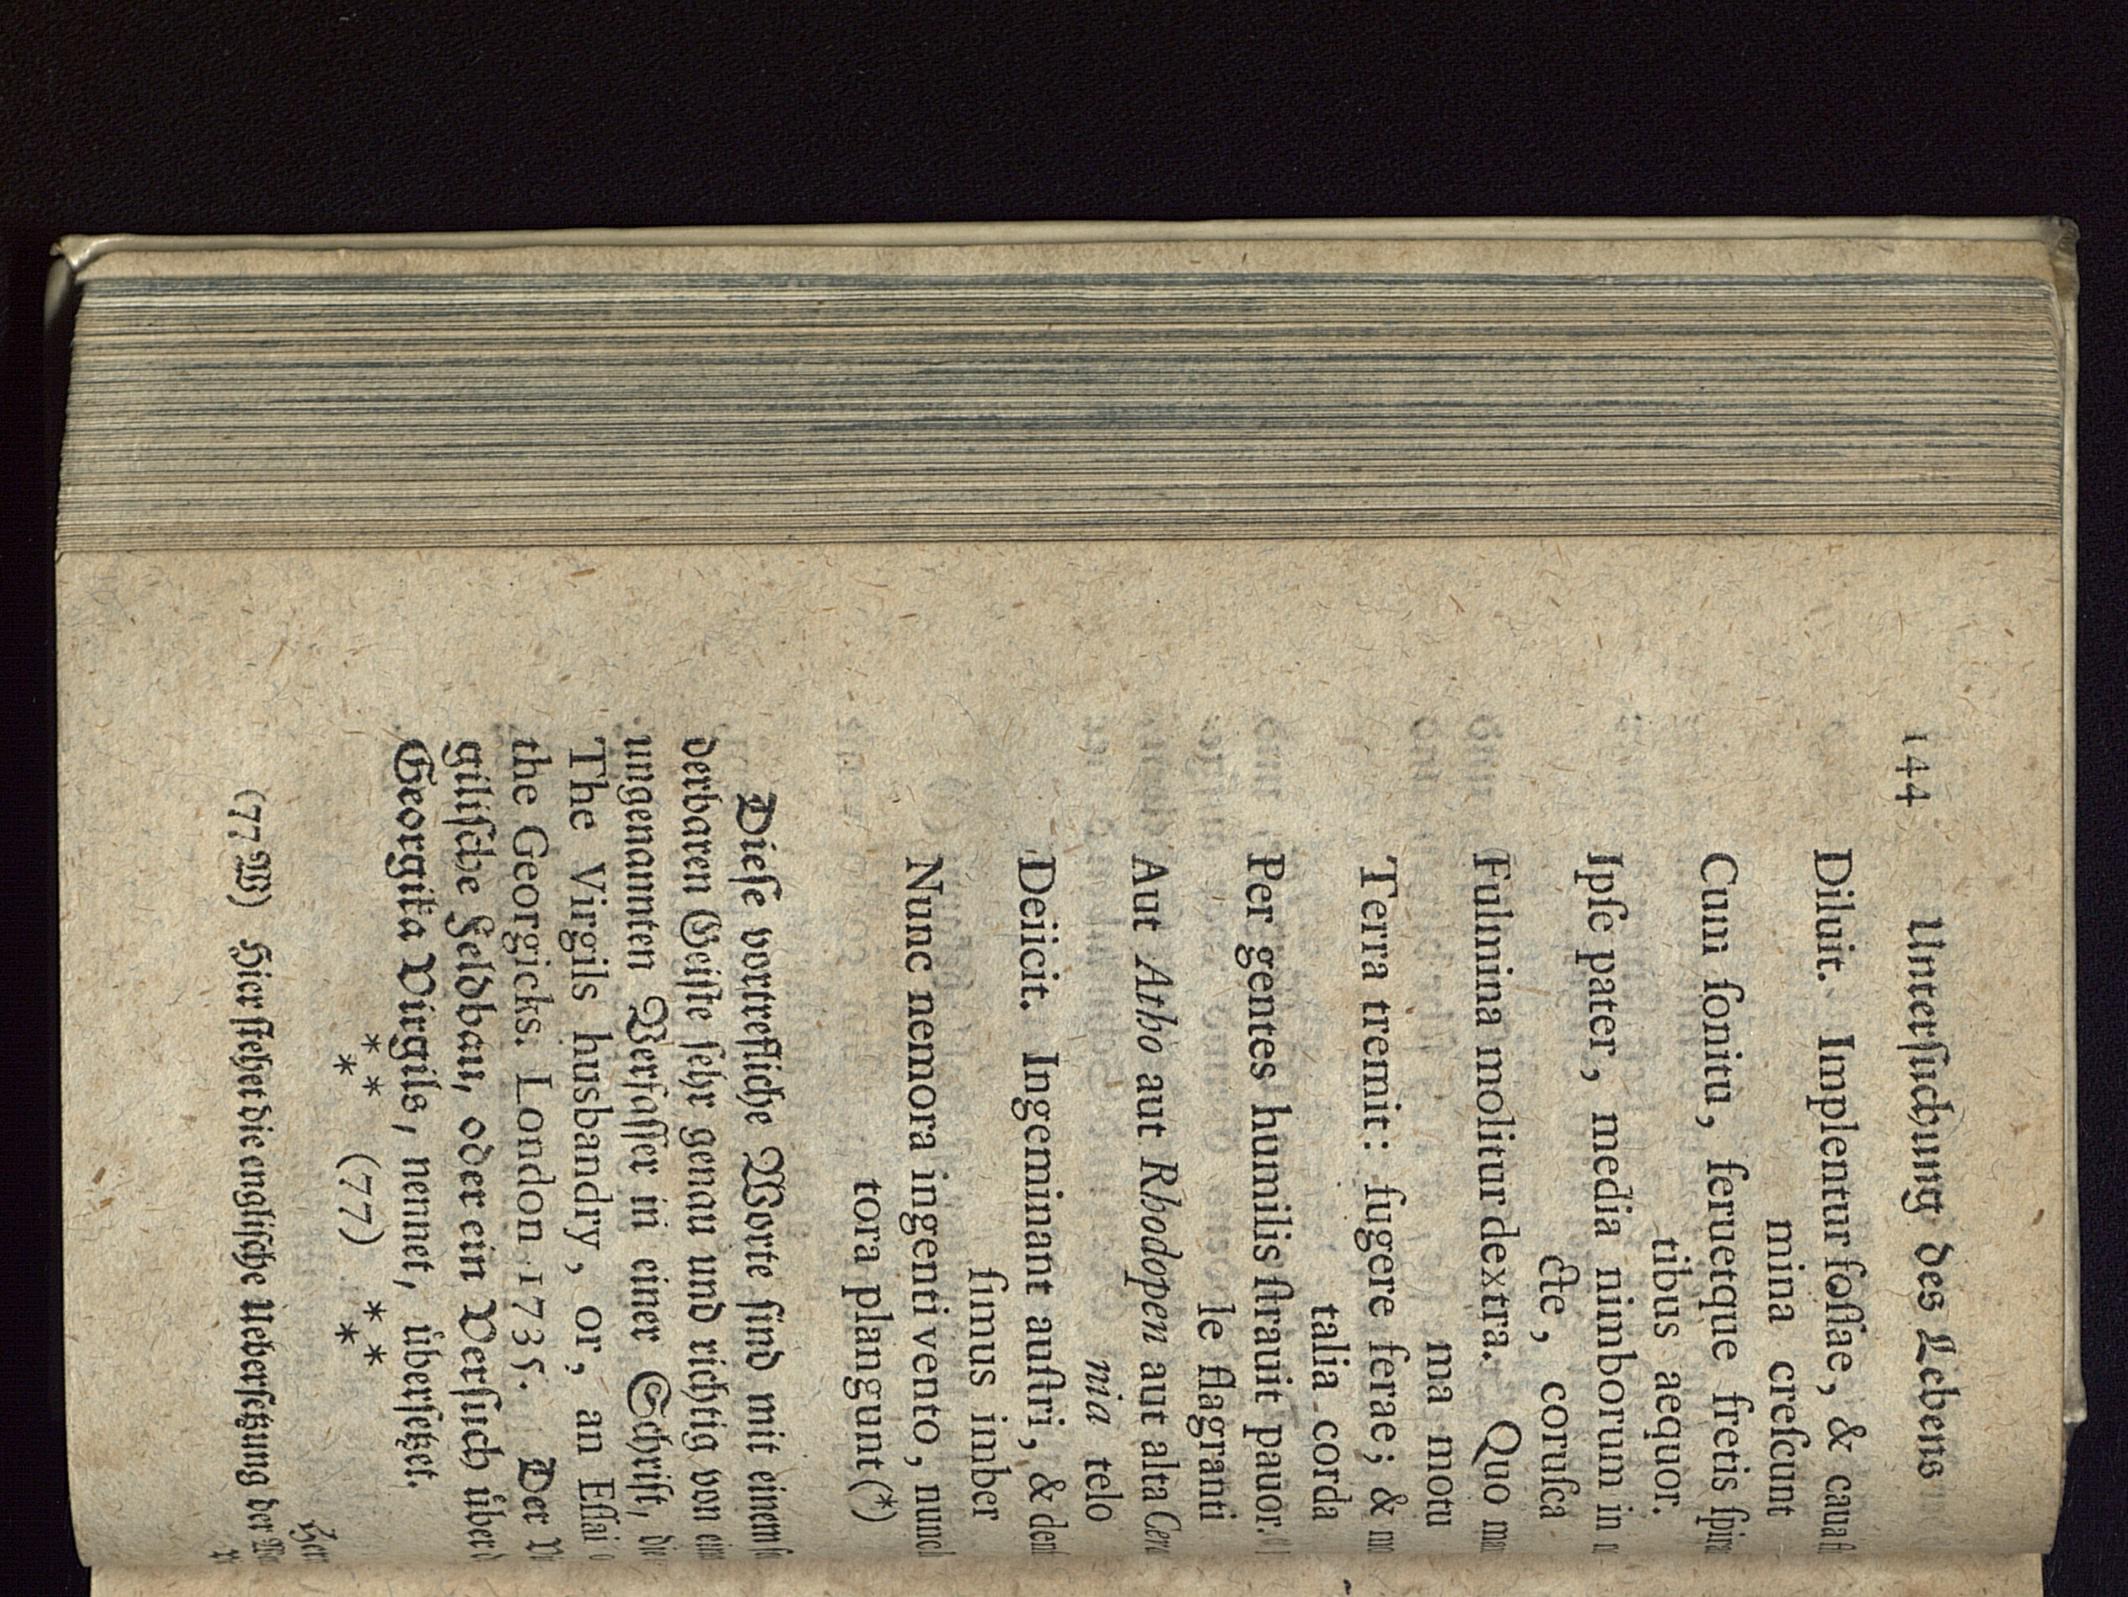 144 Unterſuchung des Lebens
Diluit. Implentur foſſae, & caua
mina creſcunt
Cum ſonitu, feruetque fretis
tibus aequor.
Ipſe pater, media nimborum in
cte, coruſca
Fulmina molitur dextra. Quo
ma motu
Terra tremit: fugere ferae; &
talia corda
Per gentes humilis ſtrauit pauor.
le flagranti
Aut Atho aut Rhodopen aut alta
nia telo
Deiicit. Ingeminant auſtri, &
ſimus imber
Nunc nemora ingenti vento, nunc
tora plangunt (*)
Dieſe vortrefliche Worte ſind mit einem
derbaren Geiſte ſehr genau und richtig von
ungenannten Verfaſſer in einer Schrift, die
The Virgils husbandry, or, an Eſſai
the Georgicks. London 1735. Der
giliſche Feldbau, oder ein Verſuch über
Georgika Virgils, nennet, überſetzet.
*** (77) ***
Her
(77 W) Hier ſtehet die engliſche Ueberſetzung der